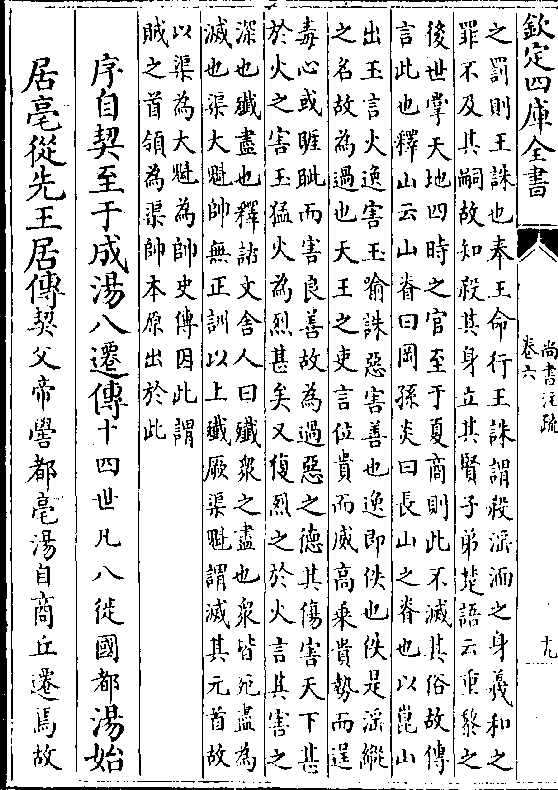 欽定四庫全書
尚書注疏
卷六
十九
之罰則王誅也奉王命行王誅謂殺淫湎之身羲和之
罪不及其嗣故知殺其身立其賢子弟楚語云重黎之
後世掌天地四時之官至于夏商則此不滅其俗故傳
言此也釋山云山脊曰岡孫炎曰長山之脊也以崑山
出玉言火逸害玉喻誅惡害善也逸即佚也佚是淫縱
之名故為過也天王之吏言位貴而威高乘貴勢而逞
毒心或睚眦而害良善故為過惡之德其傷害天下甚
於火之害玉猛火為烈甚矣又復烈之於火言其害之
深也殲盡也釋詁文舍人曰殲衆之盡也衆皆死盡為
滅也渠大魁帥無正訓以上殲厥渠魁謂滅其元首故
以渠為大魁為帥史傳因此謂
賊之首領為渠帥本原出於此
序自契至于成湯八遷傳十四世凡八徙國都湯始
居亳從先王居傳契父帝嚳都亳湯自商丘遷焉故